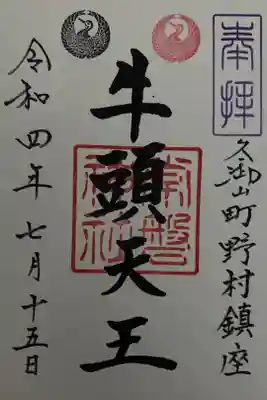 奉拝
久御山町野村鎮座
牛頭天王
常磐神社
令和四年七月十五日